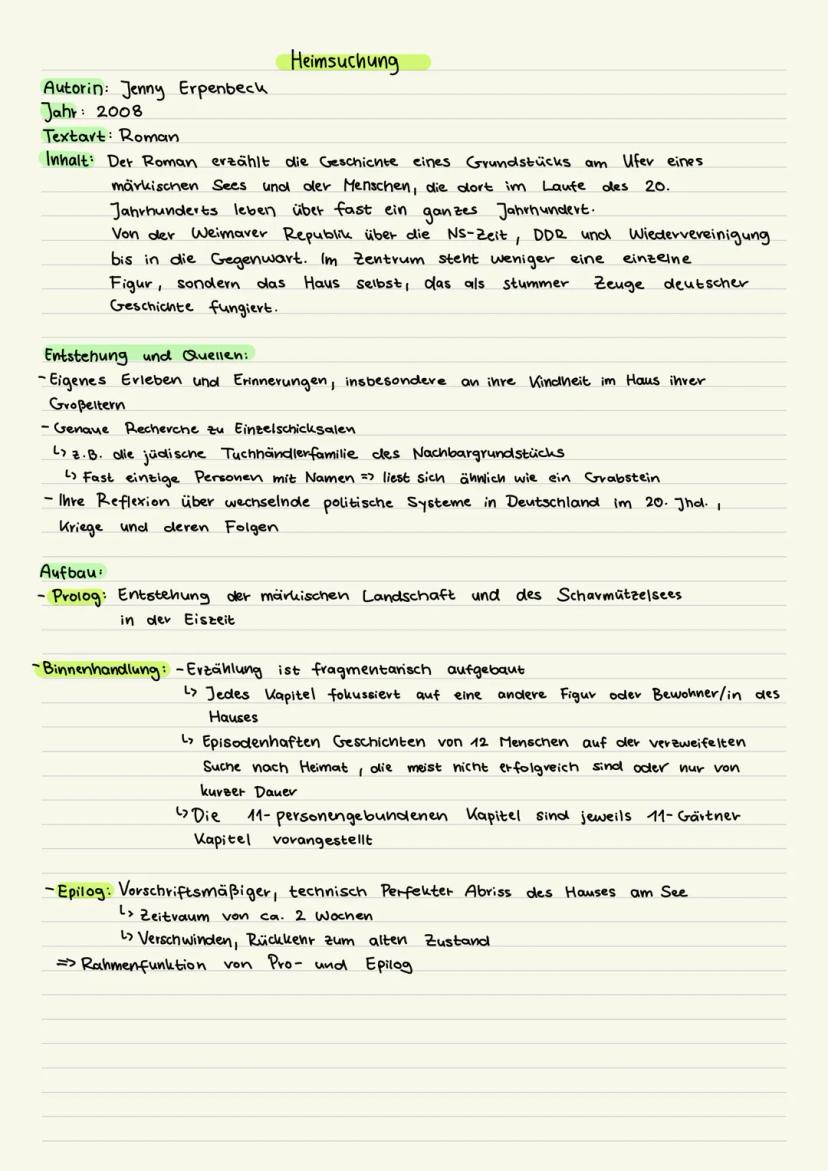 Heimsuchung
Autorin: Jenny Erpenbeck
Jahr: 2008
Textart: Roman
Inhalt: Der Roman erzählt die Geschichte eines Grundstücks am Ufer eines
märkischen Sees und der Menschen, die dort im Laufe des 20.
Jahrhunderts leben über fast ein ganzes Jahrhundert.
Von der Weimarer Republik über die NS-Zeit, DDR und Wiedervereinigung
bis in die Gegenwart. Im Zentrum steht weniger eine einzelne
Figur, sondern das Haus selbst, das als stummer Zeuge deutscher
Geschichte fungiert.
Entstehung und Quellen:
- Eigenes Erleben und Erinnerungen, insbesondere an ihre Kindheit im Haus ihrer
Großeltern
- Genaue Recherche zu Einzelschicksalen
↳ z.B. die jüdische Tuchhändlerfamilie des Nachbargrundstücks
↳ Fast einzige Personen mit Namen => liest sich ähnlich wie ein Grabstein
- Ihre Reflexion über wechselnde politische Systeme in Deutschland im 20. Jhd.,
Kriege und deren Folgen
Aufbau:
- Prolog: Entstehung der märkischen Landschaft und des Scharmützelsees
in der Eiszeit
- Binnenhandlung: - Erzählung ist fragmentarisch aufgebaut
↳ Jedes Kapitel fokussiert auf eine andere Figur oder Bewohner/in des
Hauses
↳ Episodenhaften Geschichten von 12 Menschen auf der verzweifelten
Suche nach Heimat, die meist nicht erfolgreich sind oder nur von
kurzer Dauer
↳ Die 11-personengebundenen Kapitel sind jeweils 11-Gärtner
Kapitel vorangestellt
- Epilog: Vorschriftsmäßiger, technisch Perfekter Abriss des Hauses am See
↳ Zeitraum von ca. 2 Wochen
↳ Verschwinden, Rückkehr zum alten Zustand
=> Rahmenfunktion von Pro- und Epilog